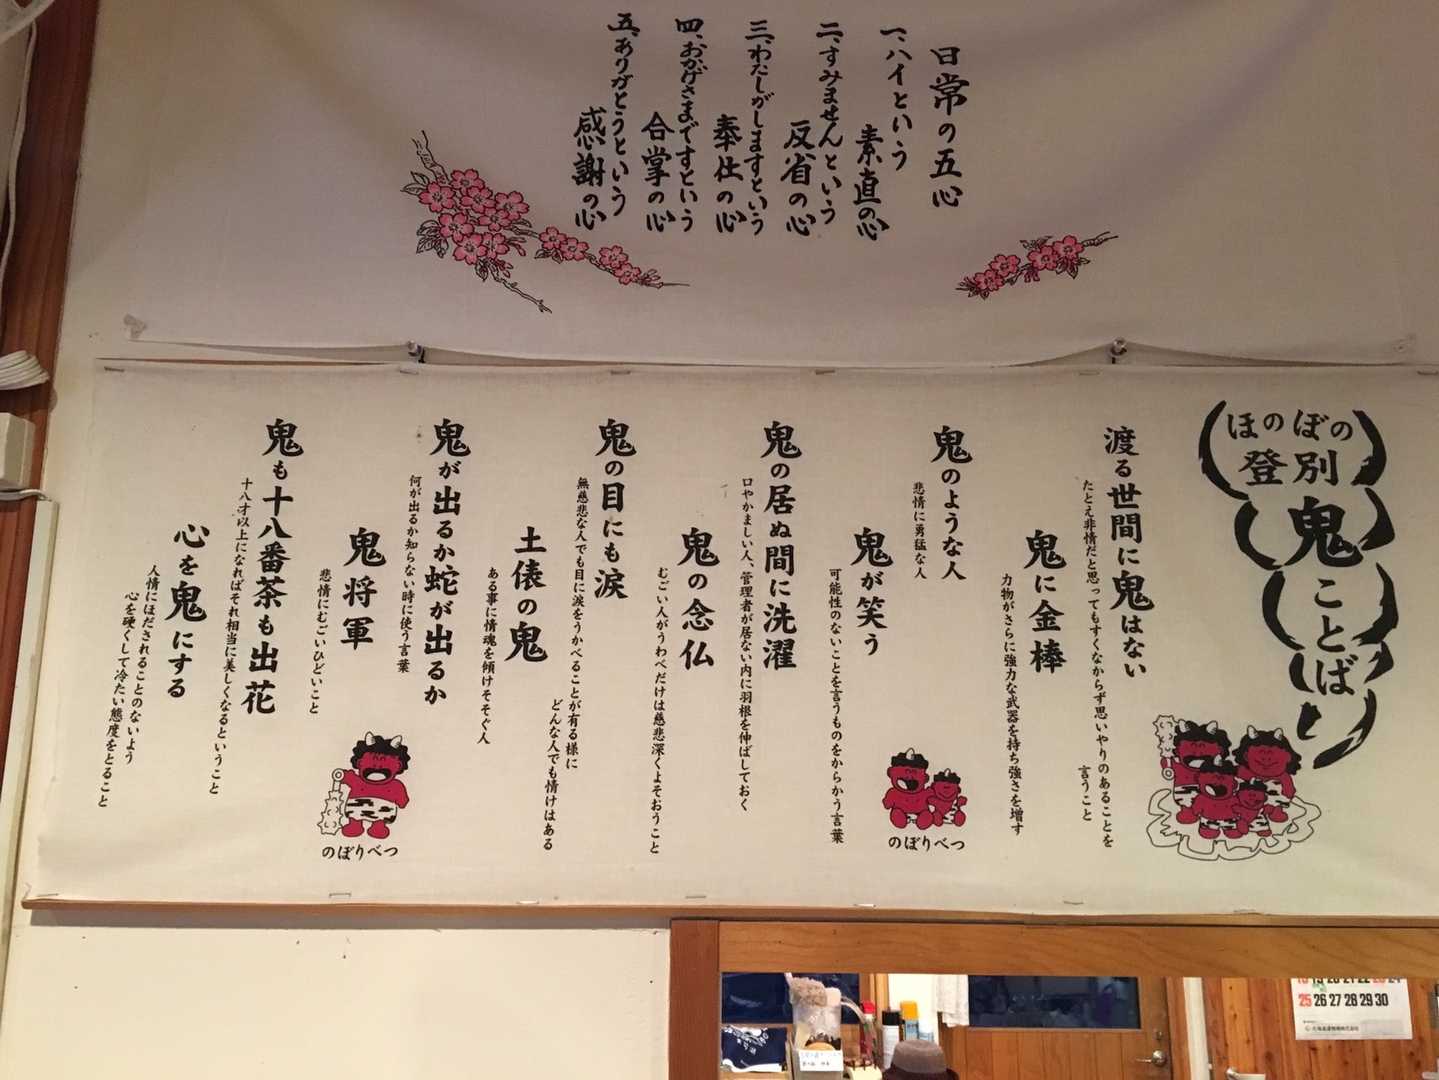 日常の五心
一、ハイという
素直の心
二、すみませんという
反省の心
三、わたしがしますという
奉仕の心
四、おかげさまですという
合掌の心
五、ありがとうという
感謝の心
ほのぼの
登別
鬼ことば
渡る世間に鬼はない
たとえ非情だと思ってもすくなからず思いやりのあることを
言うこと
鬼に金棒
力物がさらに強力な武器を持ち強さを増す
鬼のような人
悲情に勇猛な人
鬼が笑う
可能性のないことを言うものをからかう言葉
鬼の居ぬ間に洗濯
口やかましい人、管理者が居ない内に羽根を伸ばしておく
鬼の念仏
むごい人がうわべだけは慈悲深くよそおうこと
鬼の目にも涙
無慈悲な人でも目に涙をうかべることが有る様に
どんな人でも情けはある
土俵の鬼
ある事に情魂を傾けそそぐ人
鬼が出るか蛇が出るか
何が出るか知らない時に使う言葉
鬼将軍
悲情にむごいひどいこと
鬼も十八番茶も出花
十八才以上になればそれ相当に美しくなるということ
心を鬼にする
人情にほだされることのないよう
心を硬くして冷たい態度をとること
のぼりべつ
のぼりべつ
25 26 27 28 29 30